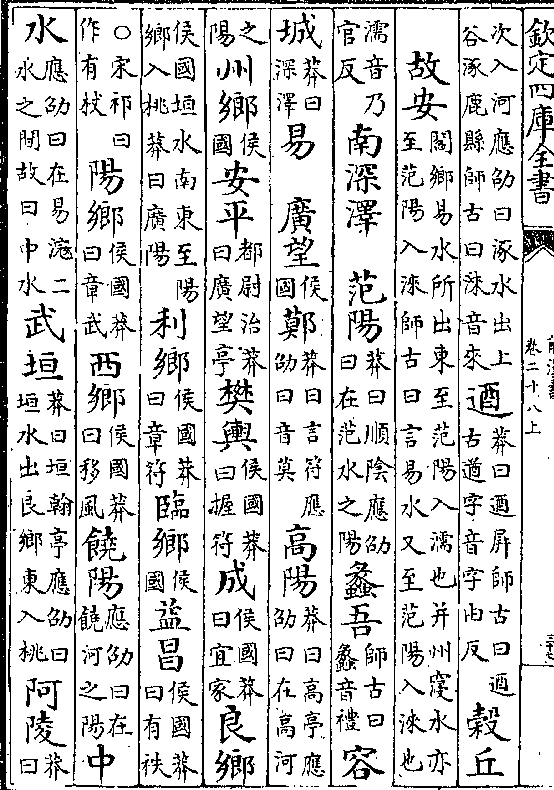 欽定四庫全書
次入河應劭曰涿水出上谷涿鹿縣師古曰淶音來遒莽曰遒屏師古曰遒古遒字音字由反榖丘
故安閻鄉易水所出東至范陽入濡也并州𡫏水亦至范陽入淶師古曰言易水又至范陽入淶也
濡音乃官反南深澤 范陽莽曰順陰應劭曰在范水之陽蠡吾師古曰蠡音禮容
城莽曰深澤易 廣望侯國鄚莽曰言符應劭曰音莫高陽莽曰高亭應劭曰在高河
之陽州鄉侯國安平都尉治莽曰廣望亭樊輿侯國莽曰握符成侯國莽曰宜家良鄉
侯國垣水南東至陽鄉入桃莽曰廣陽利鄉侯國莽曰章符臨鄉侯國益昌侯國莽曰有袟
○宋祁曰作有栻陽鄉侯國莽曰章武西鄉侯國莽曰移風饒陽應劭曰在饒河之陽中
水應劭曰在易滱二水之間故曰中水武垣莽曰垣翰亭應劭曰垣水出良鄉東入桃阿陵莽曰
卷二十八上